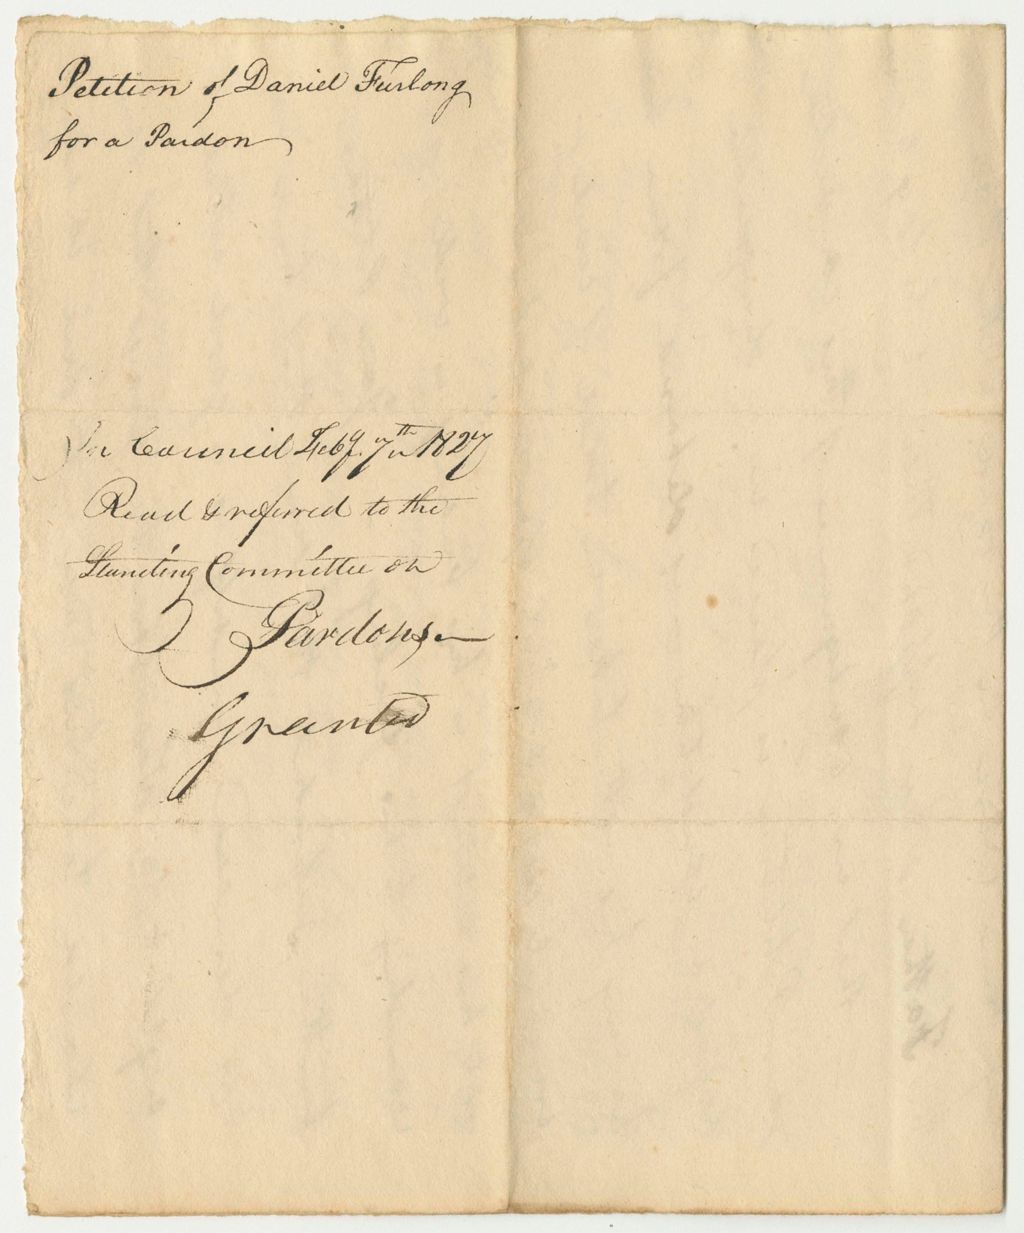 Petition of Daniel Furlong
for a Pardon
In Council Feby. 7th 1827
Read & referred to the
Standing Committee on
Pardons
Granted